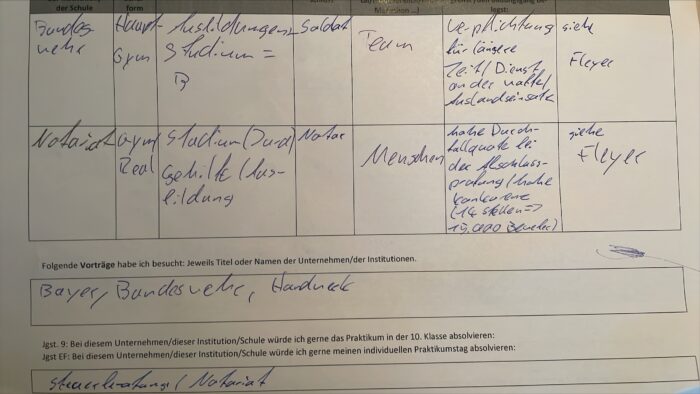 der Schule
form
Mensch ...)
logst:
Bundes
wehr
Haupt-
Gym
Ausbildungen
Studium =
B
Soldat
Team
Verpflichtung
für längere
Zeit / Dienst
an der Waffe /
Auslandseinsatz
siehe
Flyer
Notariat
Gym
Real
Studium (Jura)
Gehilfe / Aus-
bildung
Notar
Menschen
hohe Durch-
fallquote bei
der Abschluss-
prüfung / hohe
Konkurrenz
(14 Stellen =>
siehe
Flyer
Folgende Vorträge habe ich besucht: Jeweils Titel oder Namen der Unternehmen/der Institutionen.
Bayer, Bundeswehr, Handwerk
Jgst. 9: Bei diesem Unternehmen/dieser Institution/Schule würde ich gerne das Praktikum in der 10. Klasse absolvieren:
Jgst EF: Bei diesem Unternehmen/dieser Institution/Schule würde ich gerne meinen individuellen Praktikumstag absolvieren:
Steuerberatung / Notariat